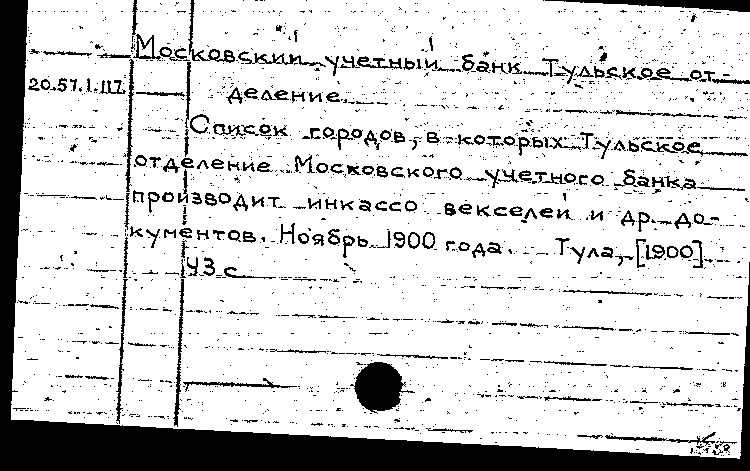 Московский учетный банк Тульское от-
20.57.1.117. деление.
Список городов, в которых Тульское
отделение Московского учетного банка
производит инкассо векселей и др. до-
кументов. Ноябрь 1900 года. Тула, [1900]
43 с